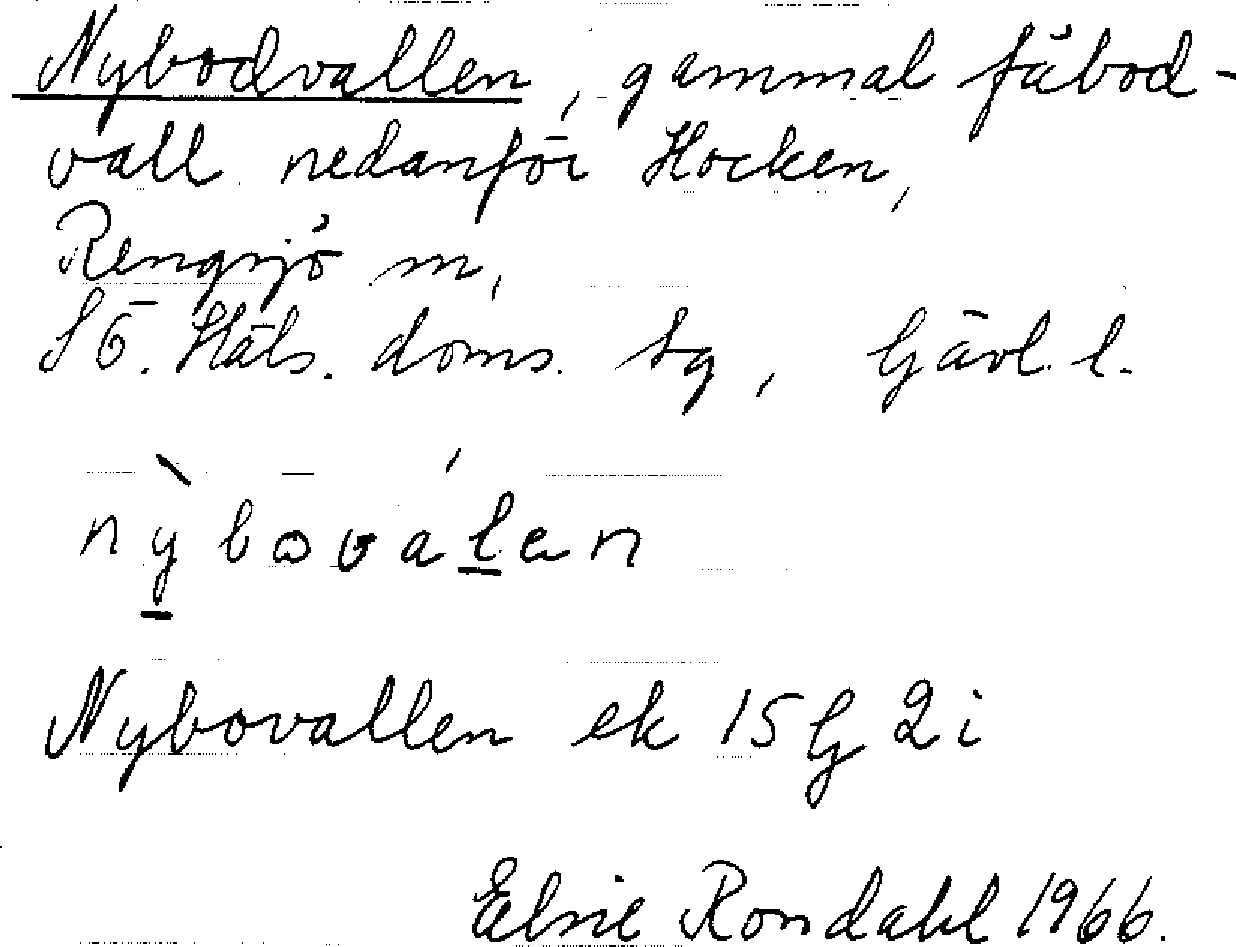 Nybodvallen, gammal fäbod-
vall nedanför Hocken,
Rengsjö sn,
SÖ. Häls. doms. sg, Gävl. l.
nỳboválen
Nybovallen ek 15G 2i
Elsie Rondahl 1966.